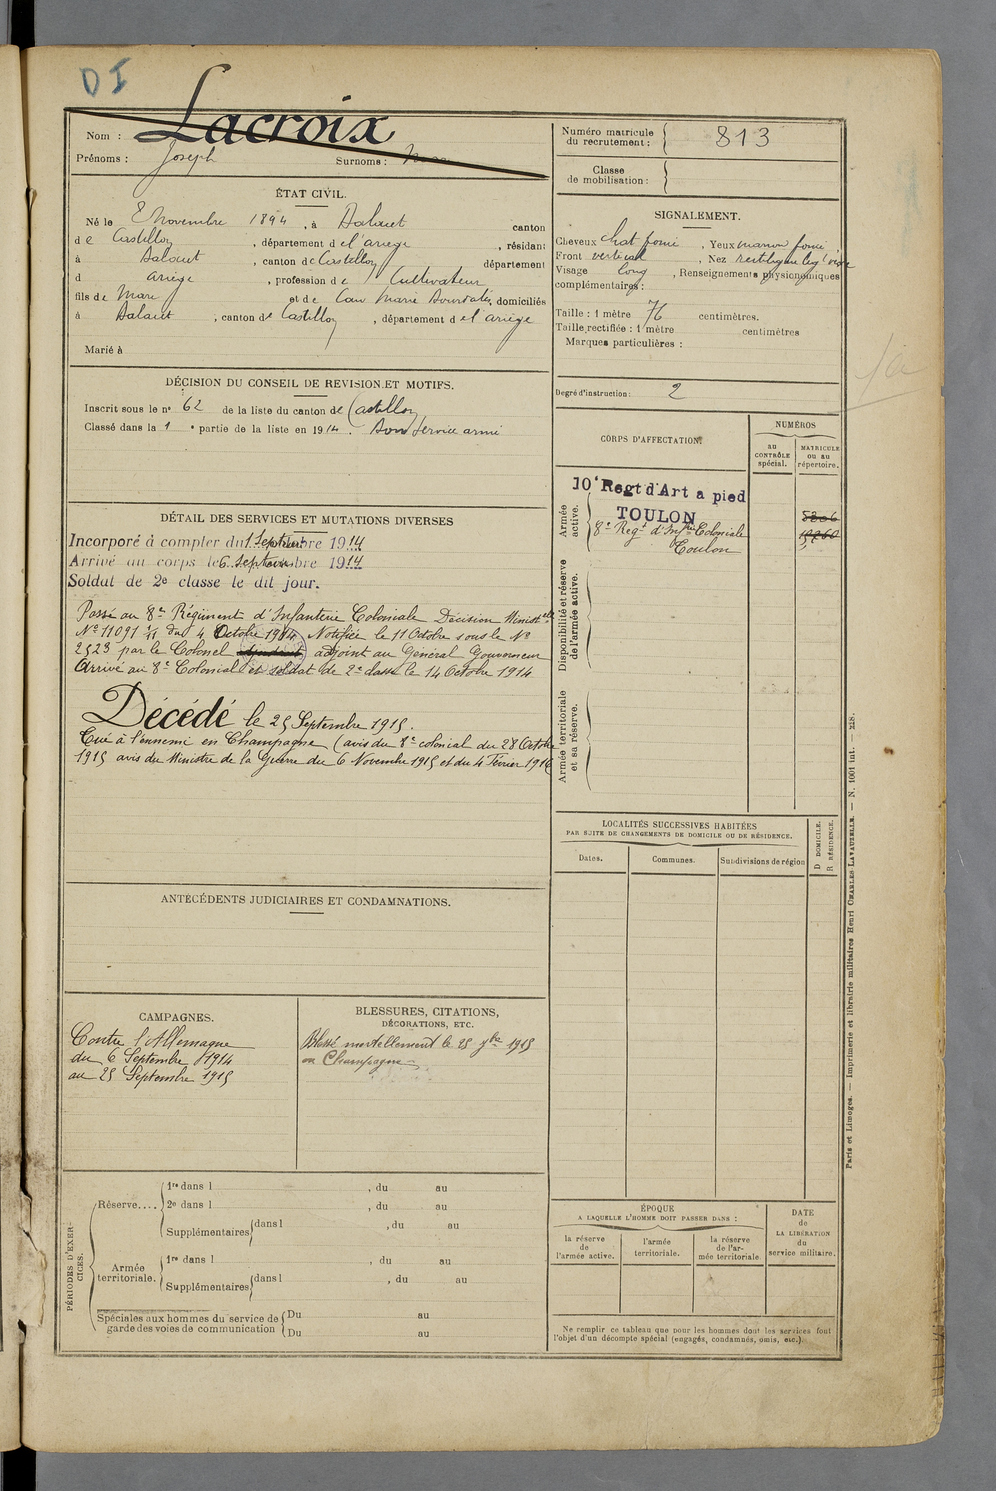 D I
Nom : Lacroix
Prénoms : Joseph Surnoms :
Numéro matricule du recrutement : 813
Classe de mobilisation :
ÉTAT CIVIL.
Né le 8 Novembre 1894, à Balacet canton
de Castillon, département de l'ariège, résidant
à Balacet, canton de Castillon département
d ariège, profession de Cultivateur
fils de Marc et de Marie domiciliés
à Balacet, canton de Castillon, département de l'ariège
Marié à
SIGNALEMENT.
Cheveux chat foncé, Yeux marron foncé
Front vertical, Nez rectiligne
Visage long, Renseignements physionomiques
complémentaires :
Taille : 1 mètre 76 centimètres.
Taille rectifiée : 1 mètre centimètres
Marques particulières :
Degré d'instruction : 2
DÉCISION DU CONSEIL DE REVISION ET MOTIFS.
Inscrit sous le nº 62 de la liste du canton de Castillon
Classé dans la 1e partie de la liste en 1914. Bon service armé
DÉTAIL DES SERVICES ET MUTATIONS DIVERSES
Incorporé à compter du 1 Septembre 1914
Arrivé au corps le 6 Septembre 1914
Soldat de 2e classe le dit jour.
Passé au 8e Régiment d'Infanterie Coloniale Décision Ministelle
Nº 11091 1/11 du 4 Octobre 1914 Notifiée le 11 Octobre sous le Nº
2523 par le Colonel adjoint au Général Gouverneur
Arrivé au 8e Colonial et soldat de 2e classe le 14 Octobre 1914
Décédé le 25 Septembre 1915.
Tué à l'ennemi en Champagne (avis du 8e colonial du 28 Octobre
1915 avis du Ministre de la Guerre du 6 Novembre 1915 et du 4 Février 1916
CORPS D'AFFECTATION.
NUMÉROS
au CONTRÔLE spécial.
MATRICULE ou au répertoire.
Armée active.
10e Regt d'Art a pied
TOULON
8e Regt d'Infrie Coloniale
Toulon
Disponibilité et réserve de l'armée active.
Armée territoriale et sa réserve.
LOCALITÉS SUCCESSIVES HABITÉES
PAR SUITE DE CHANGEMENTS DE DOMICILE OU DE RÉSIDENCE.
Dates. Communes. Subdivisions de région
D DOMICILE.
R RÉSIDENCE.
ANTÉCÉDENTS JUDICIAIRES ET CONDAMNATIONS.
CAMPAGNES.
Contre l'Allemagne
du 6 Septembre 1914
au 25 Septembre 1915
BLESSURES, CITATIONS,
DÉCORATIONS, ETC.
Blessé mortellement le 25 7bre 1915
en Champagne
PÉRIODES D'EXERCICES.
Réserve....
1re dans l , du au
2e dans l , du au
Supplémentaires dans l , du au
Armée territoriale.
1re dans l , du au
Supplémentaires dans l , du au
Spéciales aux hommes du service de garde des voies de communication
Du au
Du au
ÉPOQUE
A LAQUELLE L'HOMME DOIT PASSER DANS :
la réserve de l'armée active.
l'armée territoriale.
la réserve de l'armée territoriale
DATE de LA LIBÉRATION du service militaire.
Ne remplir ce tableau que pour les hommes dont les services font
l'objet d'un décompte spécial (engagés, condamnés, omis, etc.).
Paris et Limoges. — Imprimerie et librairie militaires Henri CHARLES-LAVAUZELLE. — N. 1001 int. — 228.